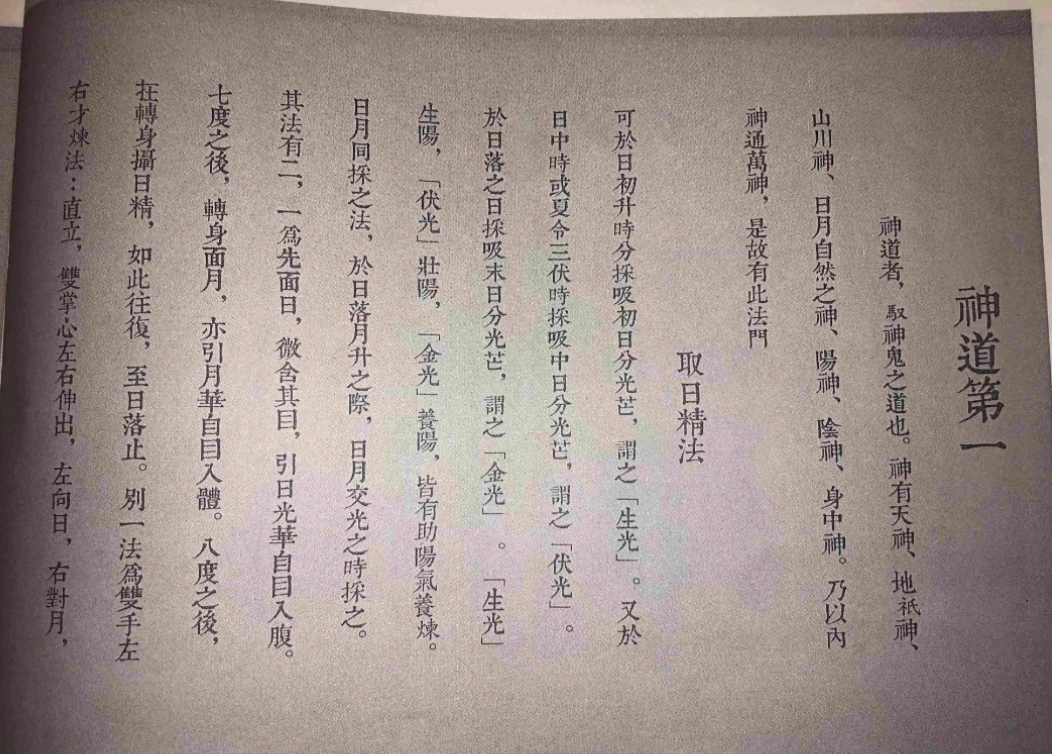 神道第一
神道者，馭神鬼之道也。神有天神、地祇神、
山川神、日月自然之神、陽神、陰神、身中神。乃以內
神通萬神，是故有此法門
取日精法
可於日初升時分採吸初日分光芒，謂之「生光」。又於
日中時或夏令三伏時採吸中日分光芒，謂之「伏光」。
於日落之日採吸末日分光芒，謂之「金光」。「生光」
生陽，「伏光」壯陽，「金光」養陽，皆有助陽氣養煉。
日月同採之法，於日落月升之際，日月交光之時採之。
其法有二，一爲先面日，微含其目，引日光華自目入腹。
七度之後，轉身面月，亦引月華自目入體。八度之後，
在轉身攝日精，如此往復，至日落止。別一法爲雙手左
右才煉法：直立，雙掌心左右伸出，左向日，右對月，